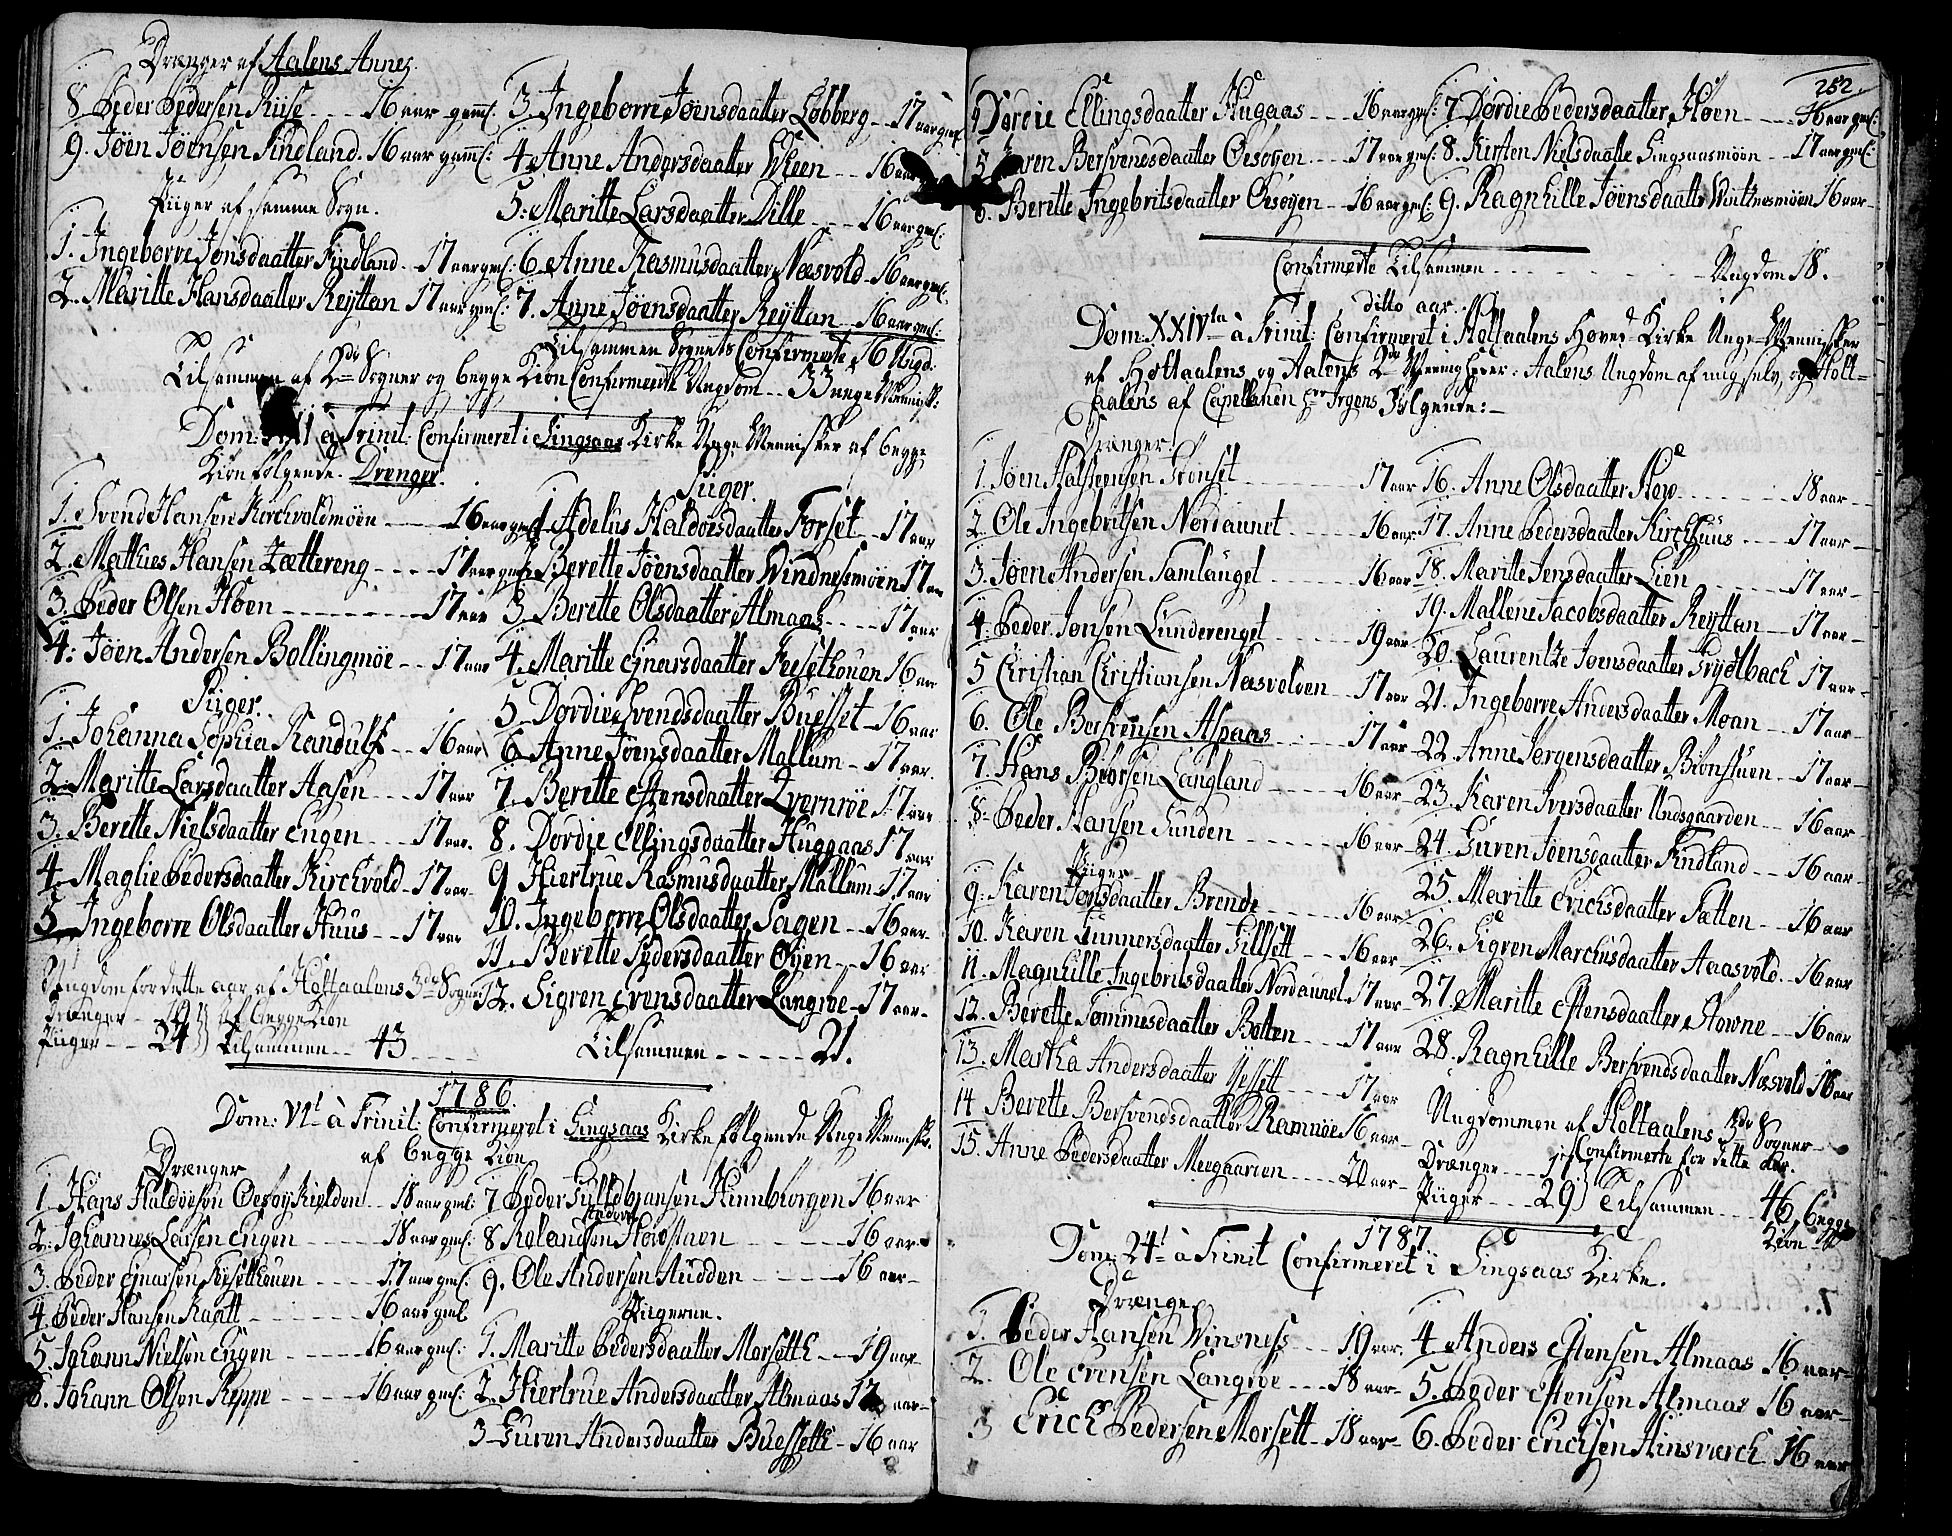 Drænger af Aalens Annex
8 Peder Pedersen Riise - - - 16 aar gaml.
9. Jøen Jøensen Findland. 16 aar gaml:
Piiger af samme Sogn.
1. Ingeborre Jonsdaatter Findland. - 17 aar gml:
2. Maritte Hansdaatter Reÿttan 17 aar gml:
3. Ingeborre Jøensdaatter Løbberg - 17 aar gml.
4. Anne Andersdaatter Skeen - - 16 aar
5. Maritte Larsdaatter Dille - - - 16 aar gml:
6 Anne Rasmusdaatter Næsvold - 16 aar gml.
7. Anne Jöensdaatter Reÿttan - 16 aar gml.
Tilsammen Sognets Confirmerte 16 Ungd:
Tilsammen af 2de Sogner og begge Kiön Confirmerte Ungdom - - 33 unge Mennisk:
Dom: à Trinit: Confirmeret i Singsaas Kirke Unge Mennisker af begge
Kiön følgende. Drenger.
1. Svend Hansen Kirchvoldmöen - - - 16 aar gml
2. Mathies Hansen Zættereng - - - - 17 aar gml
3. Peder Olsen Höen - - - - - - - 17 aar
4. Jöen Andersen Bollingmöe - - 17 aar
Piiger.
1. Johanna Sophia Randulf - - 16 aar
2. Maritte Larsdaatter Aasen - - - 17 aar
3. Berette Nielsdaatter Engen - - - 17 aar.
4. Maglie Pedersdaatter Kirchvold - 17 aar
5. Ingeborre Olsdaatter Huus - - 17 aar
Ungdom for dette aar af Holtaalens 3de Sogne
Drænger - 19 af begge Kiön
Piiger - - 24 Tilsammen - - 43
Piiger.
1 Adelus Haldoesdaatter Forset - - 17 aar
2 Berette Jöensdaatter Windnesmöen 17 aar
3. Berette Olsdaatter Almaas - - - - 17 aar
4. Maritte Ejnarsdaatter Fesethouen 16 aar
5. Dordie Svendsdaatter Buesset - 16 aar
6. Anne Jöensdaatter Mallum - 17 aar.
7. Berette Estensdaatter Qvernröe 17 aar
8. Dordie Ellingsdaatter Huggaas 17 aar
9 Hiertrue Rasmusdaatter Mallum - 17 aar
10. Ingeborre Olsdaatter Sagen - - 16 aar.
11. Berette Pedersdaatter Öÿen - - 16 aar
12. Sigren Evensdaatter Langröe - 17 aar.
Tilsammen - - - - - 21.
1786.
Dom: VIt à Trinit: Confirmeret i Singsaas Kirke følgende Unge Mennisk:
af begge Kiön
Drænger
1. Hans Haldöesøn Oesoÿkielden - - 18 aar gml:
2. Johannes Larsen Engen - - - - 18 aar gml:
3. Peder Ejnarsen Feÿsethouen - - - - 17 aar gml:
4. Peder Hansen Raatt - - - - - - 16 aar gml
5. Johann Nielsen Engen - - - - 16 aar gml:
6. Johann Olsen Reppe - - - - - 16 aar gml:
7 Peder Gulldbransen Hinnborgen 16 aar
8 Roland Andersen Howstuen - - - - 16 aar
9. Ole Andersen Audden - - - - 16 aar
Piigerne.
1. Maritte Pedersdaatter Morseth - - 19 aar
2. Hiertrue Andersdaatter Almaas 17 aar
3 Guren Andersdaatter Buesseth - 16 aar
252.
4 Dordie Ellingsdaatter Hugaas - - - 16 aar gml:
5 Karen Bersvendsdaatter Oesoÿen - - - 17 aar gml:
6. Berette Ingebritsdaatter Oesoÿen - - 16 aar gml:
7 Dordie Pedersdaatter Höen - - - - 16 aar gml:
8. Kirsten Nielsdaatte Singsaasmöen - - 17 aar gml:
9. Ragnhille Jöensdaatte Wintznesmöen 16 aar
Confirmerte Tilsammen - - - - - - - - - Ungdom 18.
ditto aar.
Dom: XXIVta à Trinit: Confirmeret i Holtaalens Hoved-Kirke Unge Mennisker
af Holtaalens og Aalens 2de Meenigheder: Aalens Ungdom af mig selv, og Holt=
aalens af Capellanen Hr Irgens Følgende: -
Drænger.
1. Jöen Halsteensen Gronset - - - - 17 aar
2. Ole Ingebritsen Nordaunet - - - - 16 aar
3. Jöen Andersen Gamlunget - - - - 16 aar
4. Peder Jonsen Lunderenget - - - - 19 aar
5 Christian Christiansen Næsvolden - - 17 aar
6. Ole Bersvensen Aspaas - - - - 17 aar
7. Hans Biörsen Langland - - - - 16 aar
8. Peder Hansen Sunden - - - - 16 aar
Piiger
9. Karen Jonsdaatter Brende - - - - 16 aar
10. Karen Gunnersdaatter Gillsett - - 16 aar
11. Magnhille Ingebritsdaatter Nordaunet 17 aar
12. Berette Tommesdaatter Bolten - - 17 aar
13. Martha Andersdaatter - - - 17 aar
14 Berette Bersvendsdaatter Ramnöe 16 aar
15. Anne Pedersdaatter Meegaarden - - - 20 aar
16. Anne Olsdaatter How - - - - - 18 aar
17. Anne Pedersdaatter Kirchhuus - - - 17 aar
18. Maritte Jensdaatter Lien - - - - 17 aar
19. Mallene Jacobsdaatter Reÿttan - - 17 aar
20. Laurentze Jöensdaatter Frÿdlbach 17 aar
21. Ingeborre Andersdaatter Moan - - 17 aar
22. Anne Jörgensdaatter Biönstuen - - 17 aar
23. Karen Iversdaatter Undsgaarden - - 16 aar
24. Guren Jöensdaatter Findland - - 16 aar
25. Maritte Erichsdaatter Sætten - - 16 aar
26. Sigren Marchusdaatter Aasvold - - 16 aar
27. Maritte Estensdaatter Stowne - - 16 aar
28. Ragnhille Bersvendsdaatter Næsvold 16 aar
Ungdommen af Holtaalens 3de Sogner
Confirmerte for dette aar.
Drænger - - - 17
Piiger - - - 29) Tilsammen - - - 46 begge
Kiön
1787
Dom: 24t à Trinit Confirmeret i Singsaas Kirke.
Drænger
1. Peder Hansen Winsness - - - 19 aar.
2. Ole Evensen Langröe - - - - 18 aar
3 Erich Pedersen Morsett - 18 aar
4 Anders Estensen Almaas 16 aar
5. Peder Estensen Almaas 16 aar
6. Peder Erichsen Hinsværch 16 aar